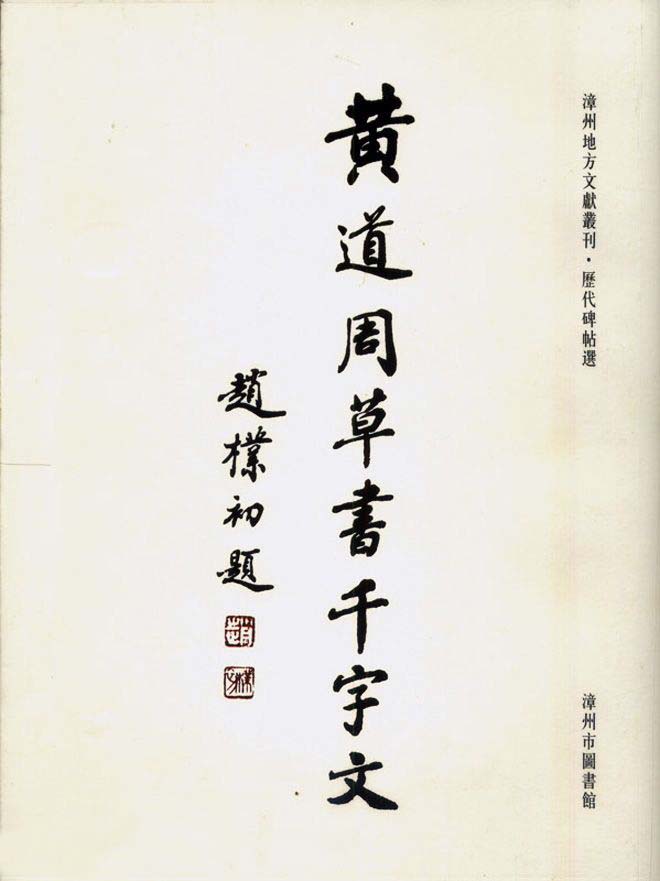 漳州地方文獻叢刊·歷代碑帖選
漳州市圖書館
黄道周草書千字文
趙樸初題